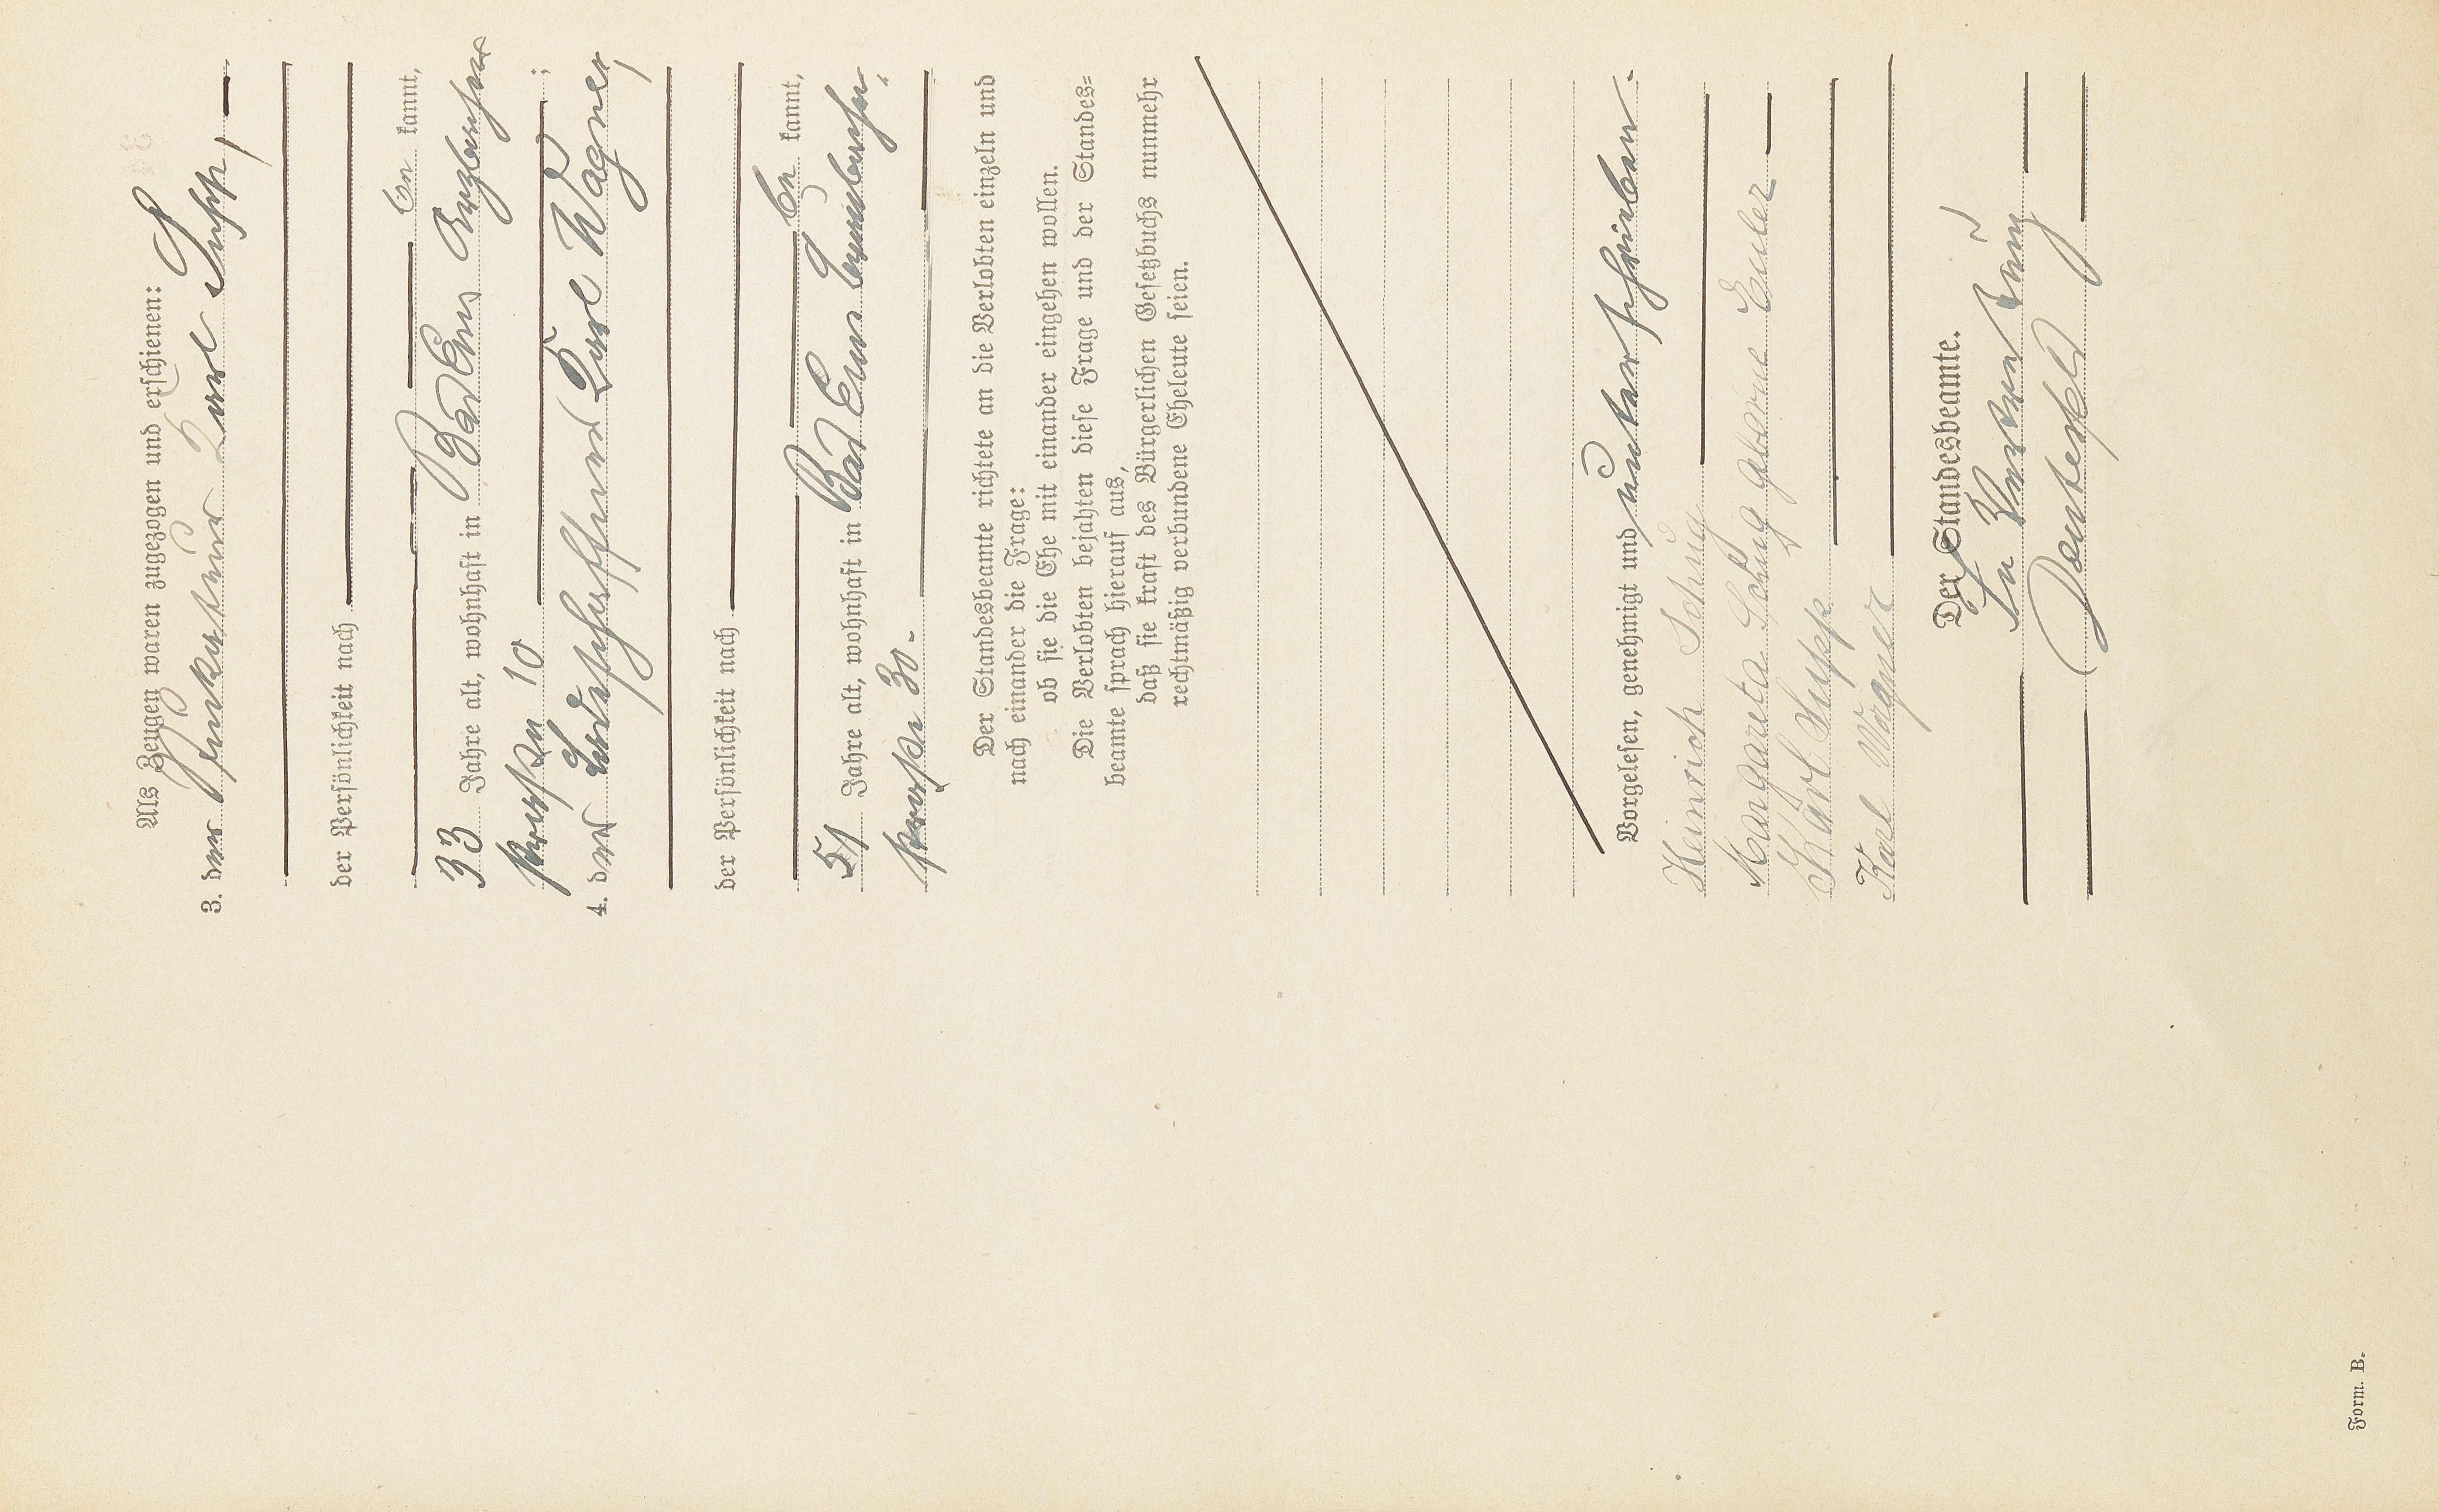 Als Zeugen waren zugezogen und erschienen:
3. der Karl Supp,
der Persönlichkeit nach
be kannt,
33 Jahre alt, wohnhaft in Bad Ems
straße 10 ;
4. der Karl Wagner,
der Persönlichkeit nach
be kannt,
51 Jahre alt, wohnhaft in Bad Ems
straße 30.
Der Standesbeamte richtete an die Verlobten einzeln und
nach einander die Frage:
ob sie die Ehe mit einander eingehen wollen.
Die Verlobten bejahten diese Frage und der Standes=
beamte sprach hierauf aus,
daß sie kraft des Bürgerlichen Gesetzbuchs nunmehr
rechtmäßig verbundene Eheleute seien.
Vorgelesen, genehmigt und unterschrieben.
Heinrich Schug
Margareta Schug geborene Euler
Karl Supp
Karl Wagner
Der Standesbeamte.
In Vertretung
Form. B.